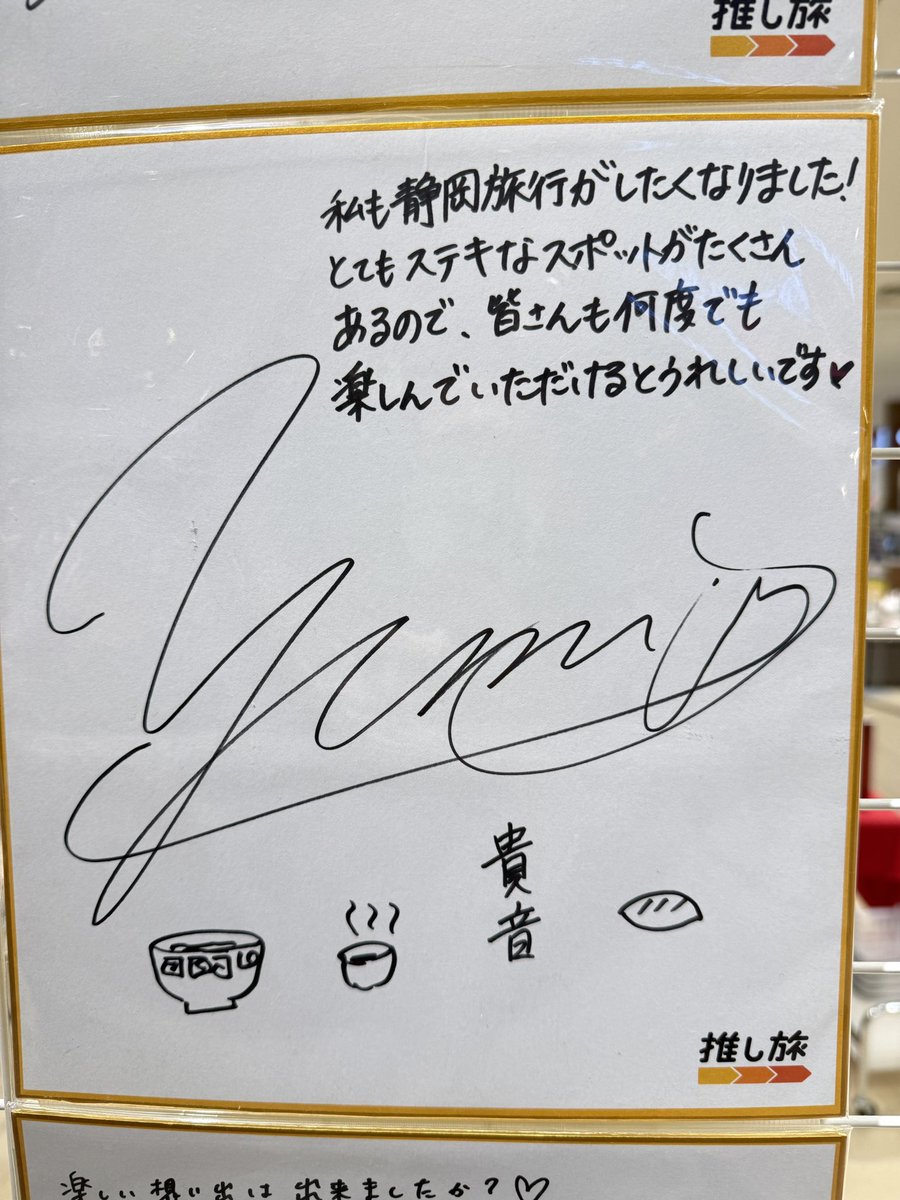 推し旅
私も静岡旅行がしたくなりました!
とてもステキなスポットがたくさん
あるので、皆さんも何度でも
楽しんでいただけるとうれしいです♥
貴音
推し旅
楽しい想い出は出来ましたか?♡